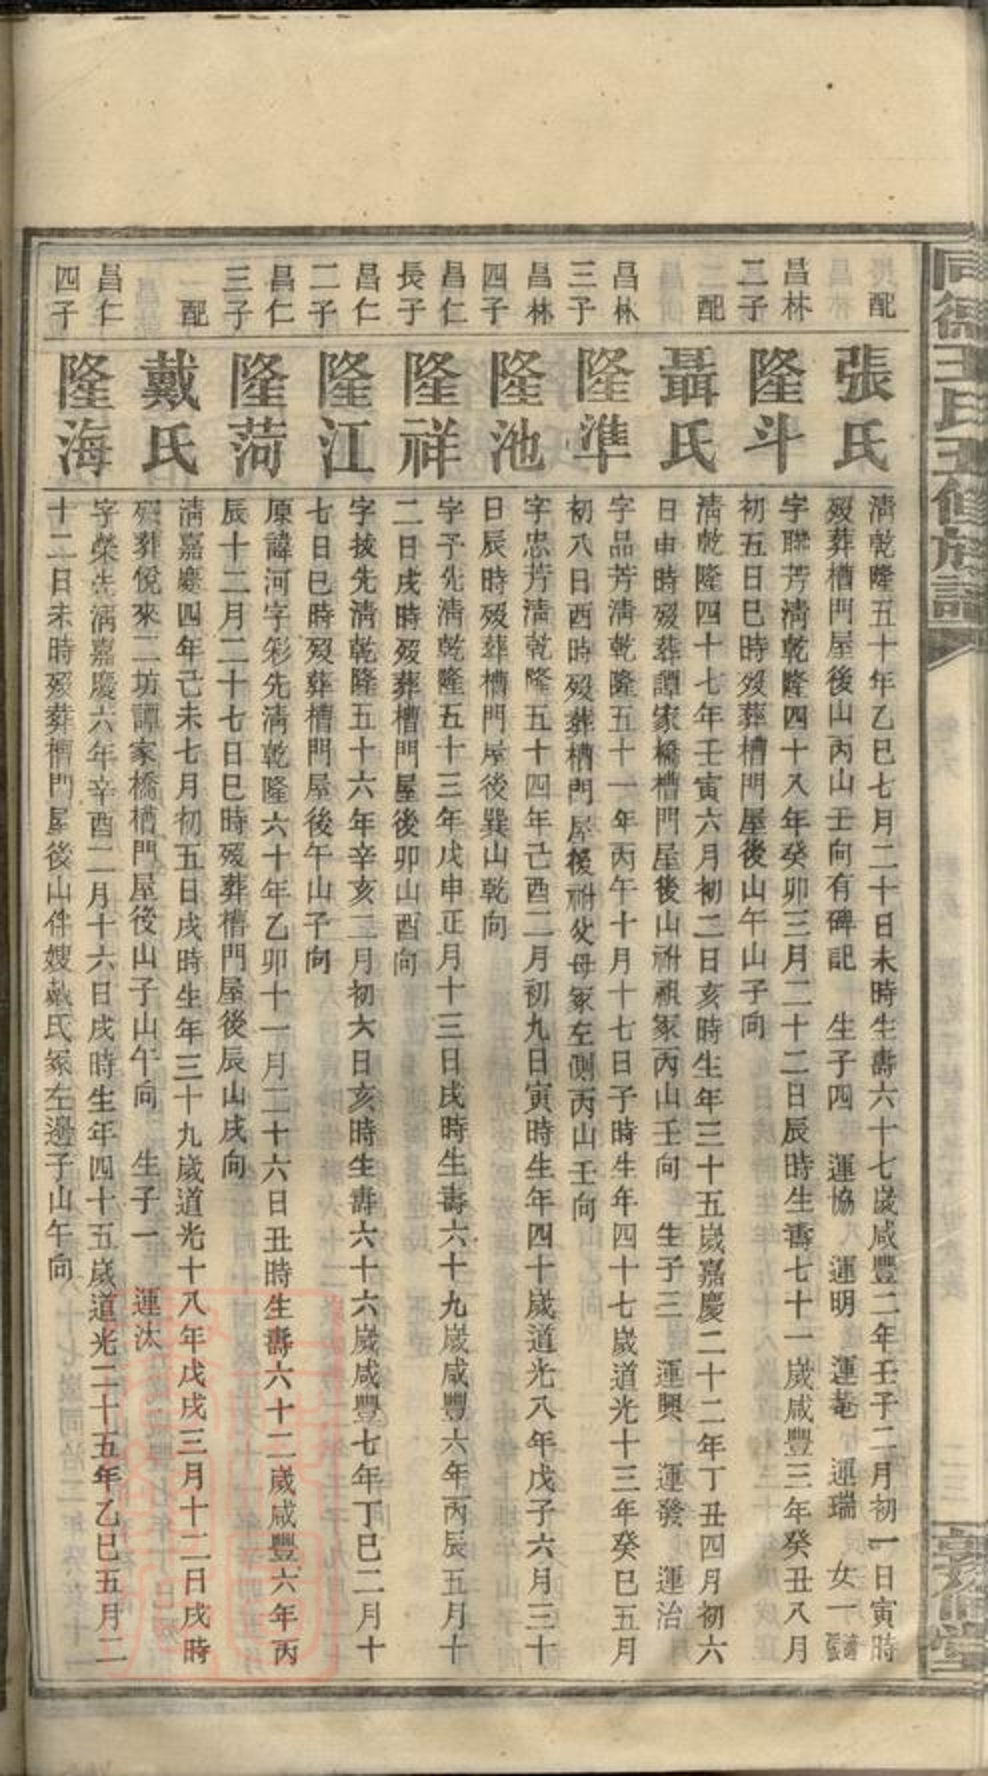 配
張氏
清乾隆五十年乙巳七月二十日未時生壽六十七歲咸豐二年壬子二月初一日寅時
歿葬槽門屋後山丙山壬向有碑記 生子四 運協 運明 運菴 運瑞 女一適張
昌林
二子
隆斗
字聯芳清乾隆四十八年癸卯三月二十二日辰時生壽七十一歲咸豐三年癸丑八月
初五日巳時歿葬槽門屋後山午山子向
配
聶氏
清乾隆四十七年壬寅六月初二日亥時生年三十五歲嘉慶二十二年丁丑四月初六
日申時歿葬譚家橋槽門屋後山祔祖冢丙山壬向 生子三 運興 運發 運治
昌林
三子
隆準
字品芳清乾隆五十一年丙午十月十七日子時生年四十七歲道光十三年癸巳五月
初八日酉時歿葬槽門屋後祔父母冢左側丙山壬向
昌林
四子
隆池
字忠芳清乾隆五十四年己酉二月初九日寅時生年四十歲道光八年戊子六月三十
日辰時歿葬槽門屋後巽山乾向
昌仁
長子
隆祥
字予先清乾隆五十三年戊申正月十三日戌時生壽六十九歲咸豐六年丙辰五月十
二日戌時歿葬槽門屋後卯山酉向
昌仁
二子
隆江
字拔先清乾隆五十六年辛亥三月初六日亥時生壽六十六歲咸豐七年丁巳二月十
七日巳時歿葬槽門屋後午山子向
昌仁
三子
隆菏
原諱河字彩先清乾隆六十年乙卯十一月二十六日丑時生壽六十二歲咸豐六年丙
辰十二月二十七日巳時歿葬槽門屋後辰山戌向
配
戴氏
清嘉慶四年己未七月初五日戌時生年三十九歲道光十八年戊戌三月十二日戌時
歿葬悅來二坊譚家橋槽門屋後山子山午向 生子一 運汰
昌仁
四子
隆海
字榮先清嘉慶六年辛酉二月十六日戌時生年四十五歲道光二十五年乙巳五月二
十二日未時歿葬槽門屋後山伴嫂戴氏冢左邊子山午向